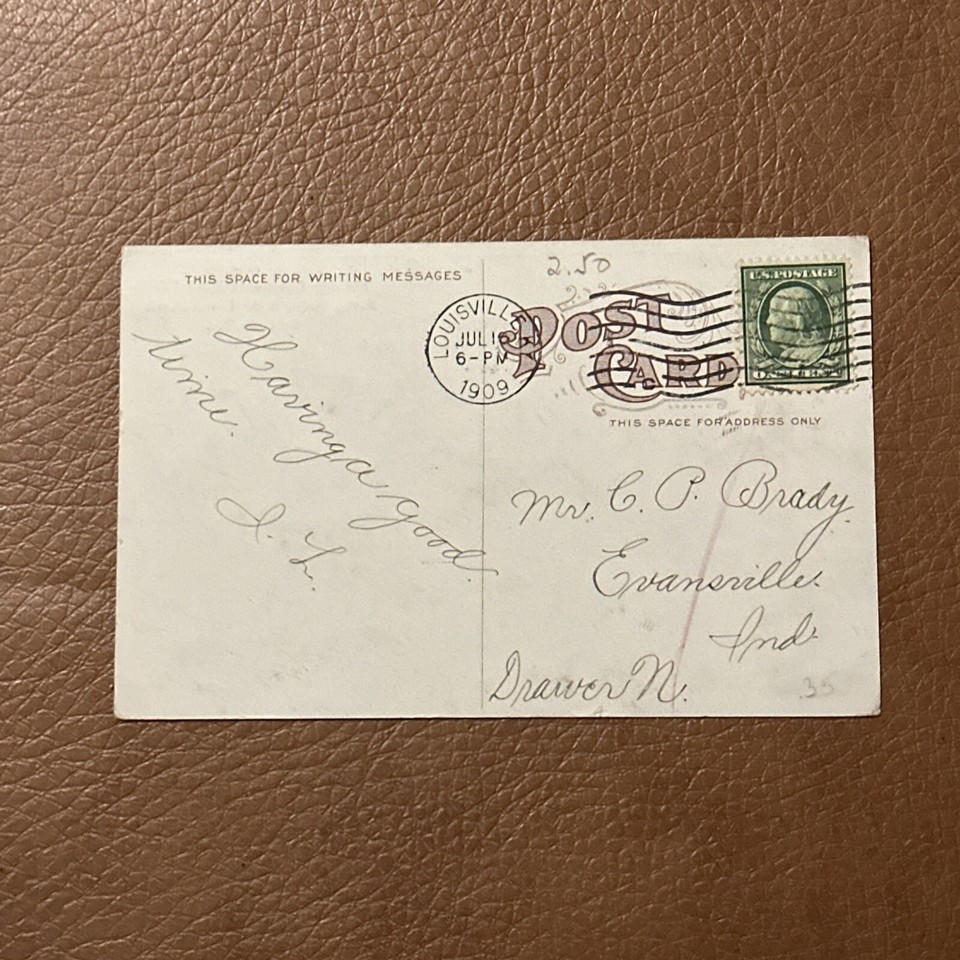 THIS SPACE FOR WRITING MESSAGES
2.50
U.S. POSTAGE
ONE CENT
LOUISVILLE
JUL 16
6-PM
1909
POST
CARD
THIS SPACE FOR ADDRESS ONLY
Having a good
time.
I. L.
Mr. C. P. Brady.
Evansville.
Ind.
Drawer N.
.35